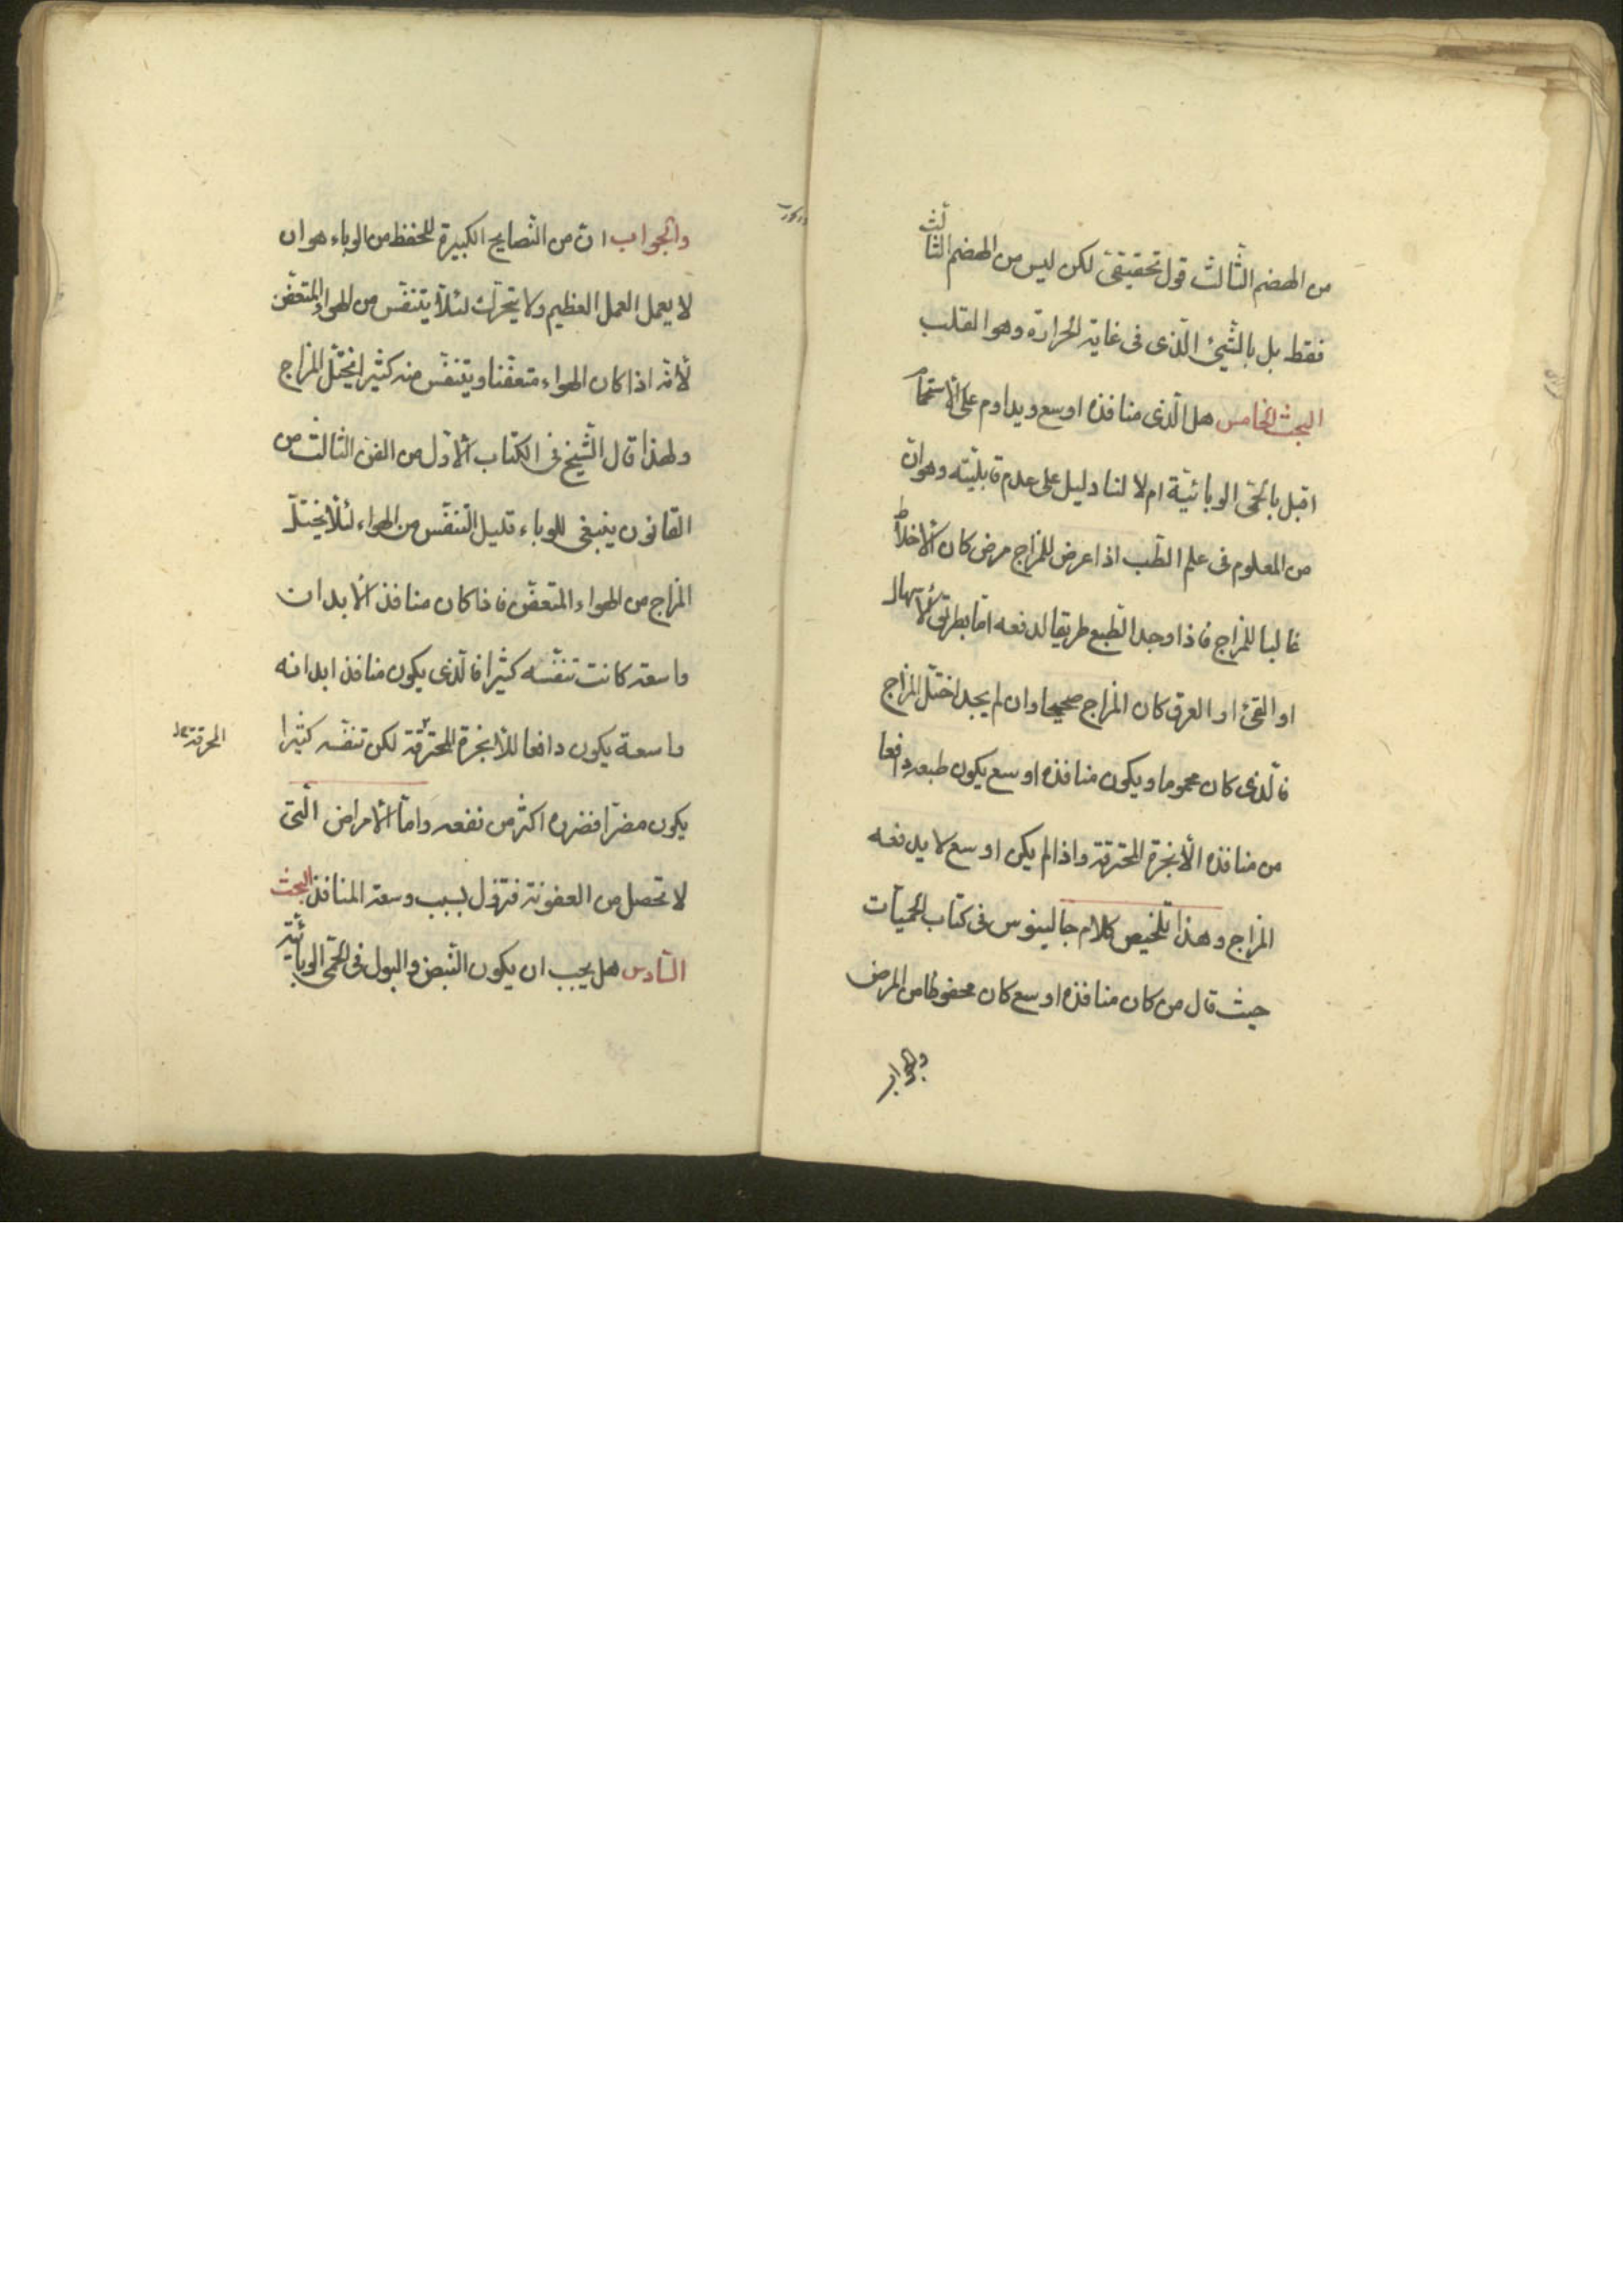 من الهضم الثالث قول تحقيقى لكن ليس من الهضم الثالث
فقط بل بالشئ الذى فى غاية الحرارة وهو القلب
البحث الخامس هل الذى منافذه اوسع ويداوم على الاستحما
اقبل بالحمى الوبائية ام لا لنا دليل على عدم قابليته وهو ان
من المعلوم فى علم الطب اذا عرض للمزاج مرض كان الاخلا
غالبا للمزاج فاذا وجد الطبع طريقا لدفعه اما بطريق الاسهال
او القئ او العرق كان المزاج صحيحا وان لم يجد اختل المزاج
فالذى كان محموما ويكون منافذه اوسع يكون طبعه دافعا
من منافذه الأبخرة المحترقة واذا لم يكن اوسع لا يدفعه
المزاج وهذا تلخيص كلام جالينوس فى كتاب الحميات
حيث قال من كان منافذه اوسع كان محفوظا من المرض
والجواب
والجواب ان من النصايح الكبيرة للحفظ من الوباء هو ان
لا يعمل العمل العظيم ولا يتحرك لئلا يتنفس من الهواء المتعفن
لأنه اذا كان الهواء متعفنا ويتنفس منه كثيرا يختل المزاج
ولهذا قال الشيخ فى الكتاب الاول من الفن الثالث من
القانون ينبغى للوباء قليل التنفس من الهواء لئلا يختل
المزاج من الهواء المتعفن فاذا كان منافذ الأبدان
واسعة كانت تنفسه كثيرا فالذى يكون منافذ ابدانه
واسعة يكون دافعا للأبخرة المحترقة لكن تنفسه كثيرا
المحرقة
يكون مضرا فضرره اكثر من نفعه واما الأمراض التى
لا تحصل من العفونة فتزول بسبب وسعة المنافذ البحث
السادس هل يجب ان يكون النبض والبول فى الحمى الوبائية